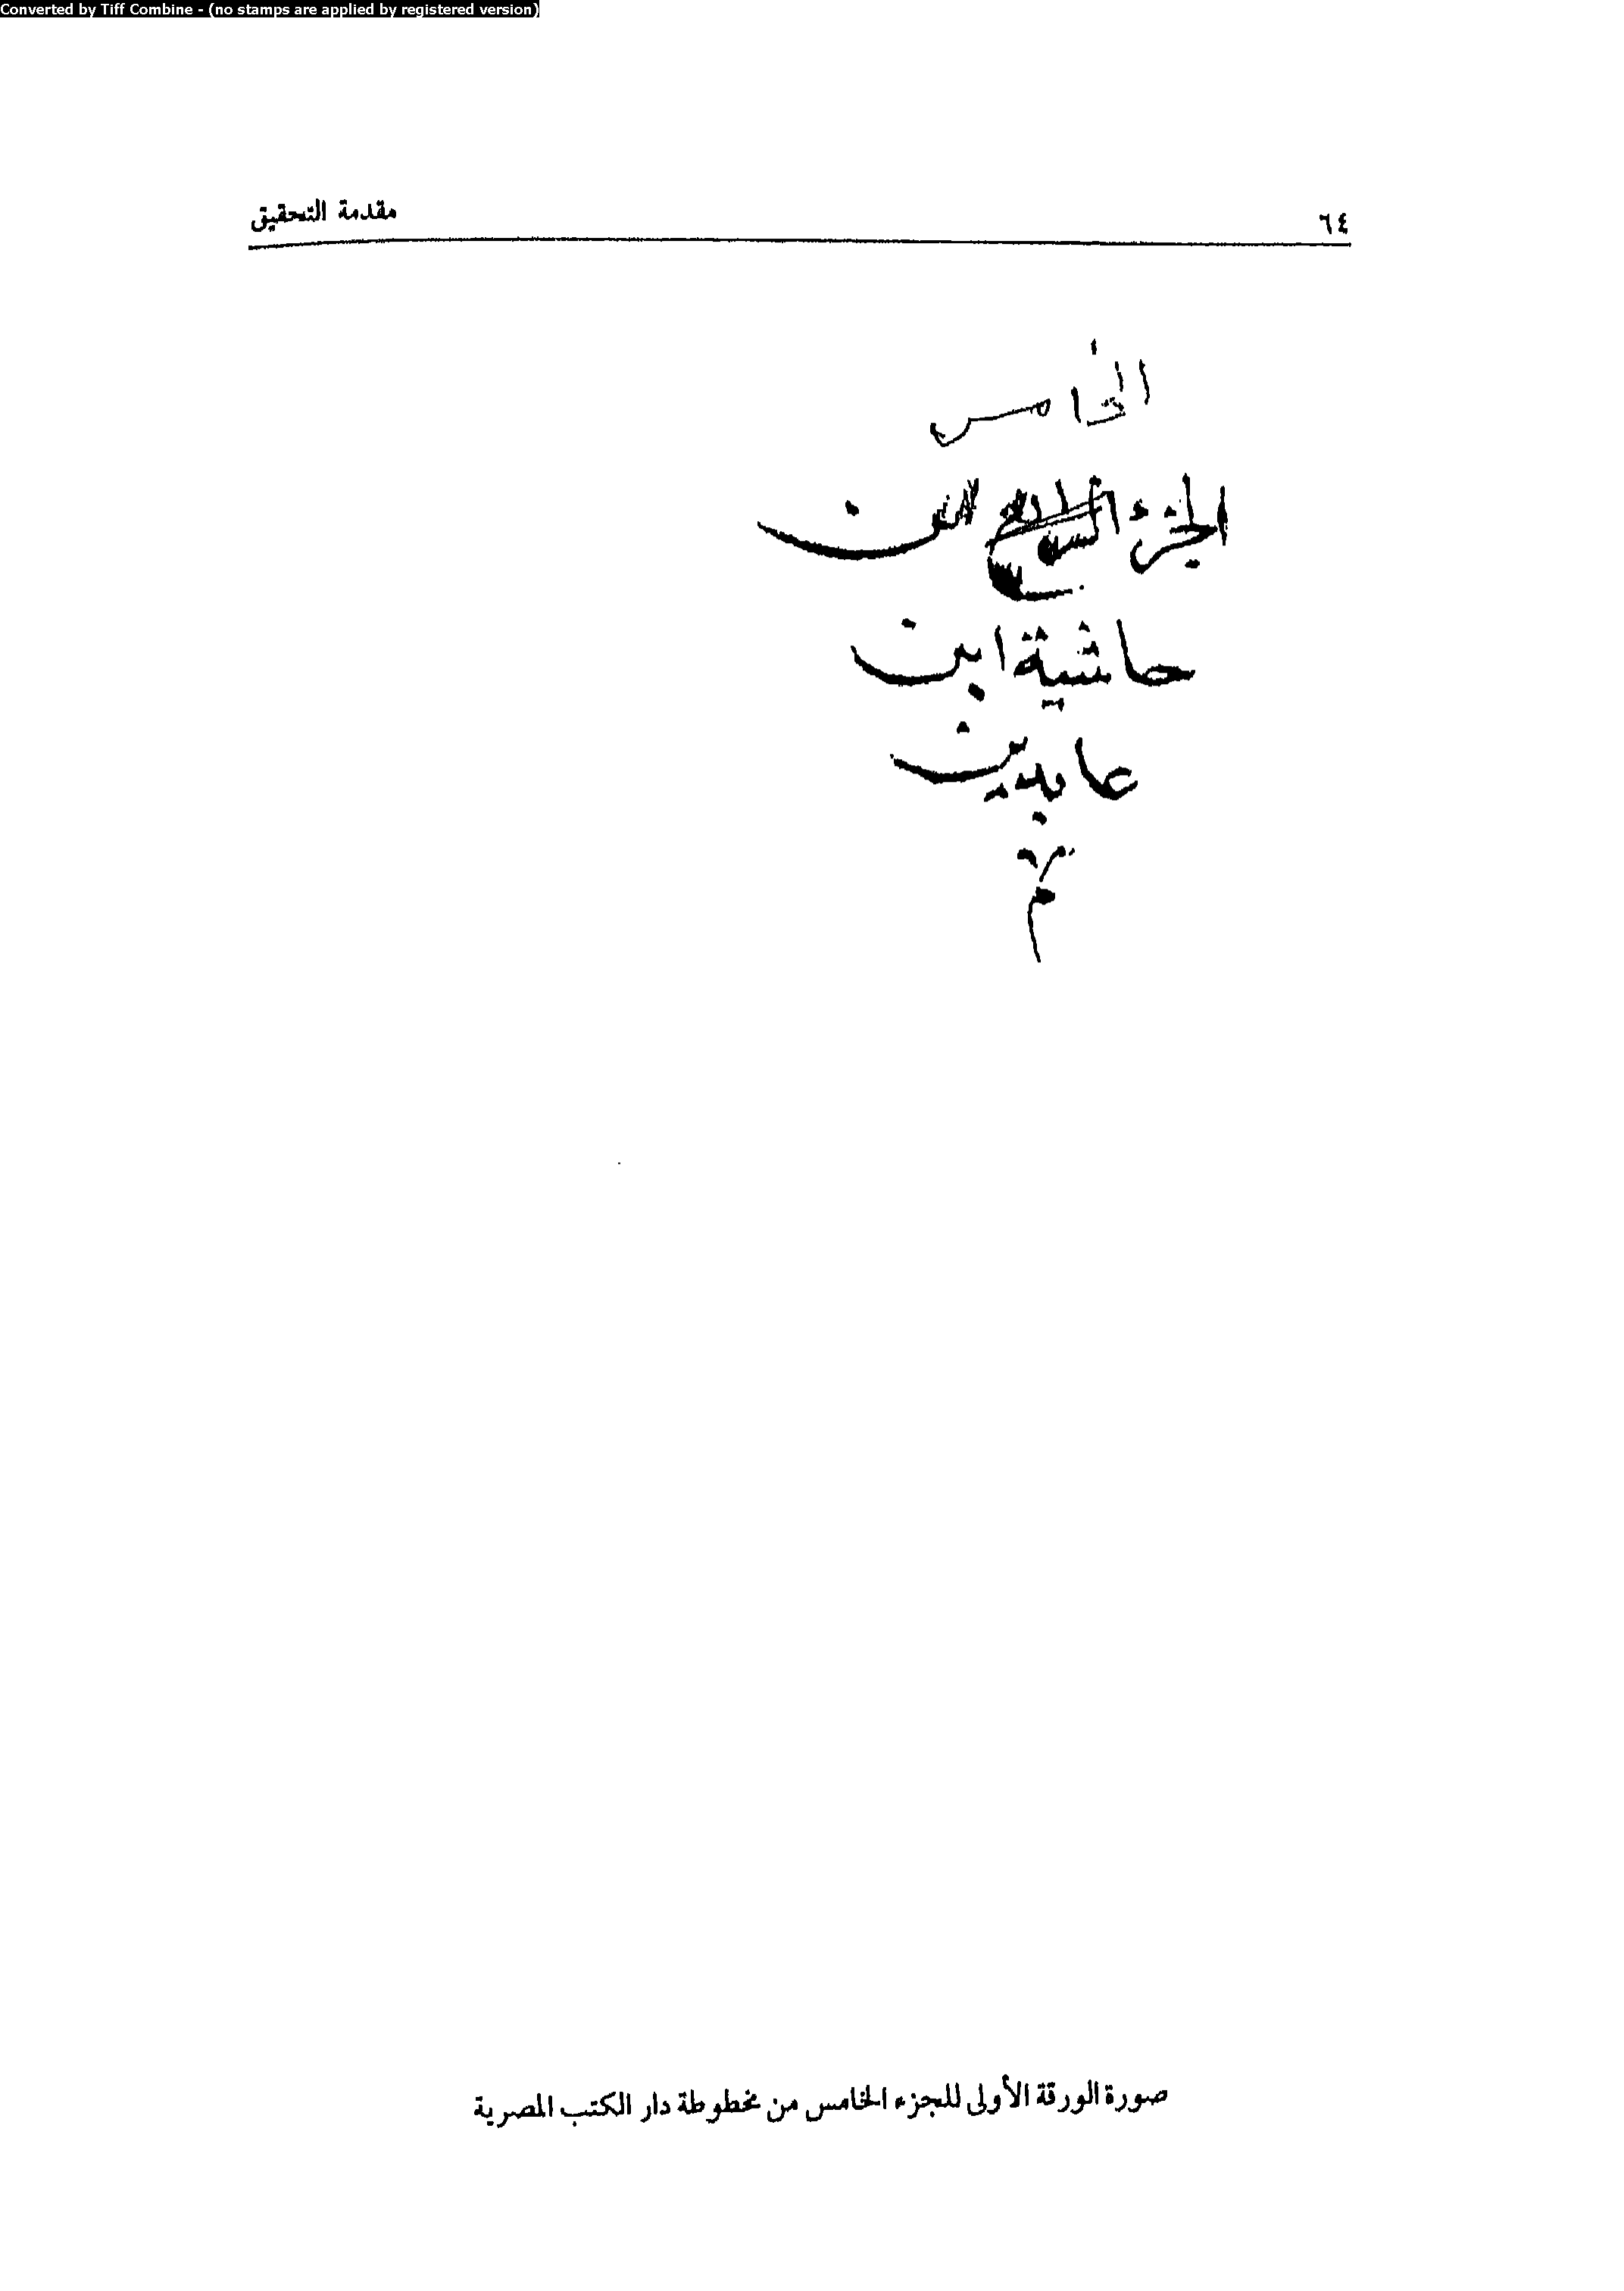 Converted by Tiff Combine - (no stamps are applied by registered version)
٦٤ مقدمة التحقيق
الخامس
الجزء من
حاشية ابن
عابدين
م
صورة الورقة الأولى للجزء الخامس من مخطوطة دار الكتب المصرية